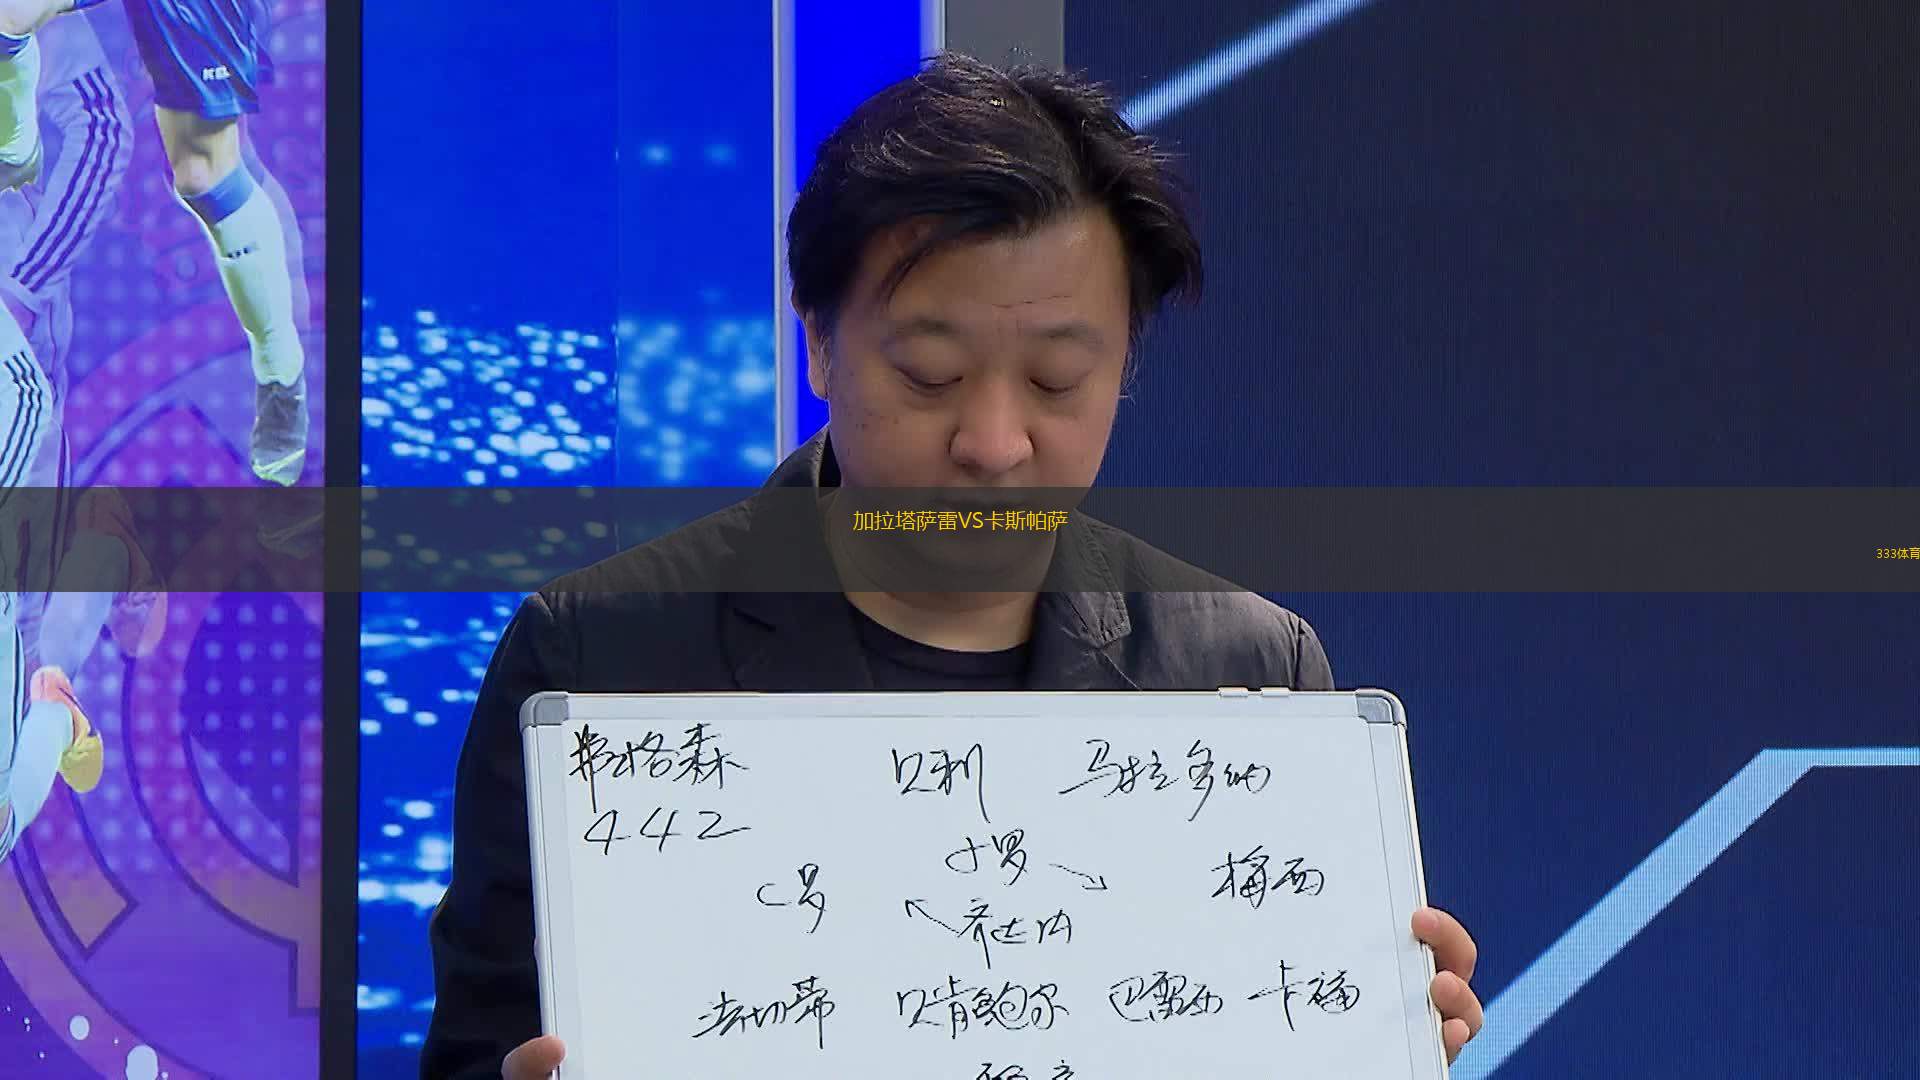 加拉塔萨雷VS卡斯帕萨
333体育
弗格森 贝利 马拉多纳
442
小罗
C罗 梅西
齐达内
法切蒂 贝肯鲍尔 巴雷西 卡福